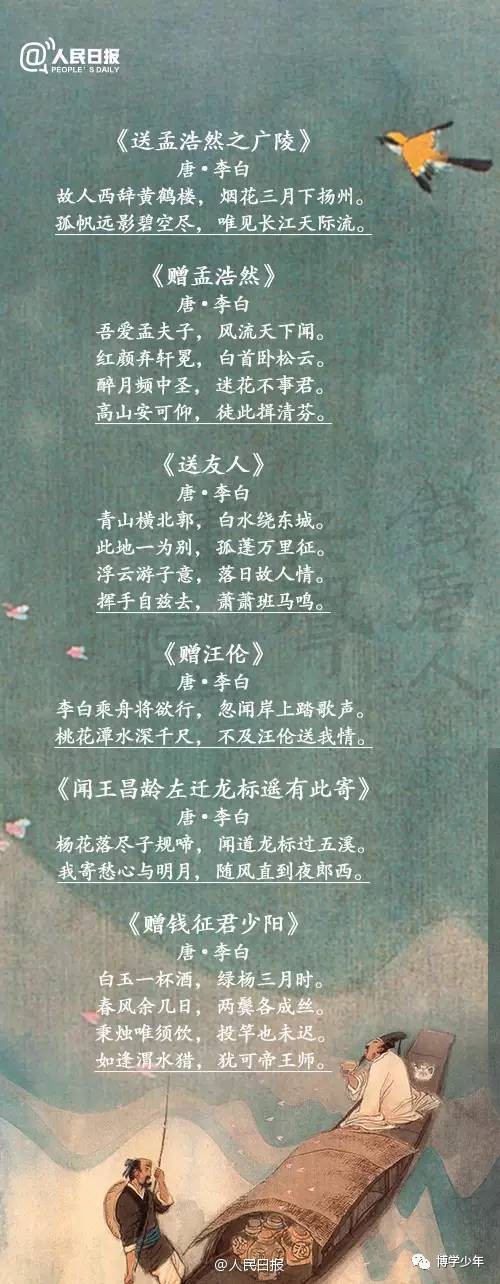 @人民日报
PEOPLE'S DAILY
《送孟浩然之广陵》
唐·李白
故人西辞黄鹤楼，烟花三月下扬州。
孤帆远影碧空尽，唯见长江天际流。
《赠孟浩然》
唐·李白
吾爱孟夫子，风流天下闻。
红颜弃轩冕，白首卧松云。
醉月频中圣，迷花不事君。
高山安可仰，徒此揖清芬。
《送友人》
唐·李白
青山横北郭，白水绕东城。
此地一为别，孤蓬万里征。
浮云游子意，落日故人情。
挥手自兹去，萧萧班马鸣。
《赠汪伦》
唐·李白
李白乘舟将欲行，忽闻岸上踏歌声。
桃花潭水深千尺，不及汪伦送我情。
《闻王昌龄左迁龙标遥有此寄》
唐·李白
杨花落尽子规啼，闻道龙标过五溪。
我寄愁心与明月，随风直到夜郎西。
《赠钱征君少阳》
唐·李白
白玉一杯酒，绿杨三月时。
春风余几日，两鬓各成丝。
秉烛唯须饮，投竿也未迟。
如逢渭水猎，犹可帝王师。
@人民日报
博学少年